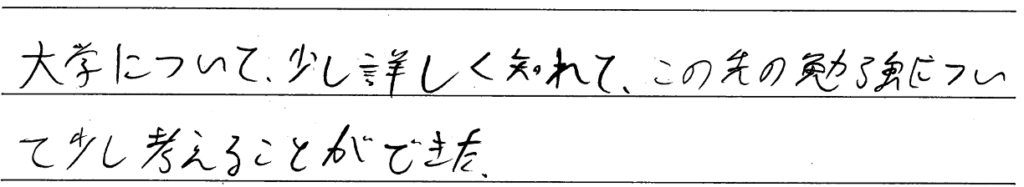 大学について、少し詳しく知れて、この先の勉強につい
て少し考えることができた。